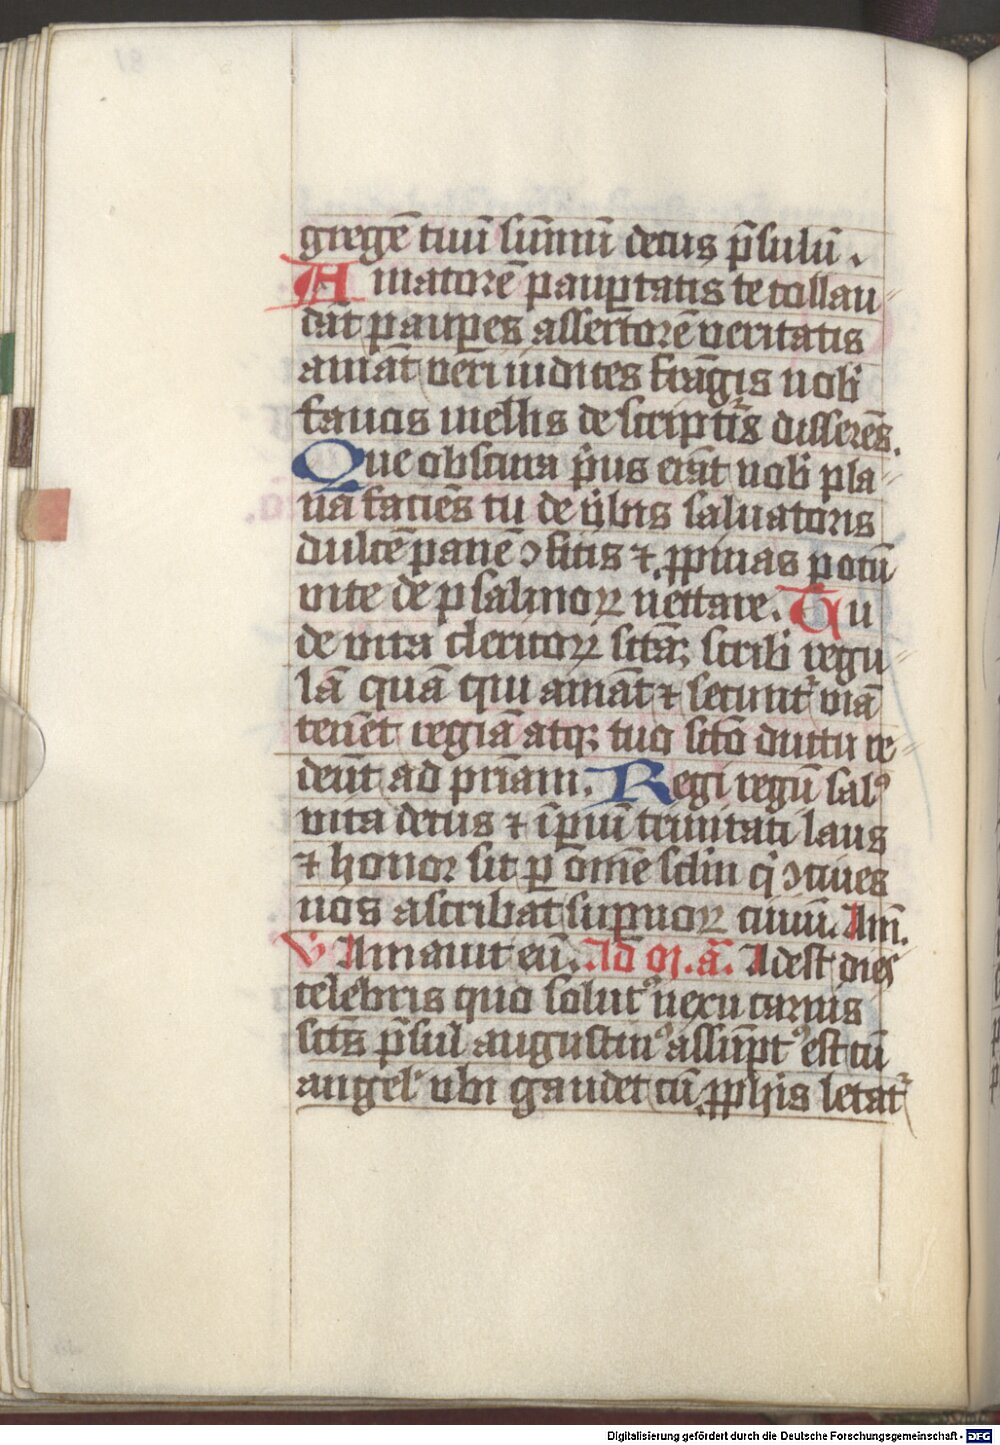 gregē tuū sūmū decus p̄sulū.
Amatorē pauꝑtatis te collau
dāt pauꝑes assertorē veritatis
amāt veri iudices frāgis nob̾
fauos mellis de scriptīs disserēs.
Que obscura p̾us erāt nob̾ pla
na faciēs tu de v̾bis saluatoris
dulcē panē ꝯficis ⁊ ꝓpinas potū
vite de psalmoꝝ nectare. Tu
de vita clericoꝝ scām scrib̾ regu
lā quā qui amāt ⁊ secunt᷑ viā
tenēt regiā atqꝫ tuo scō ductu re
deūt ad pr̄iam. Regi regū salꝰ
vita decus ⁊ īꝑiū trinitati laus
⁊ honor sit ꝑ om̄e sclm̄ q̾ ꝯciues
nos ascribat suꝑnoꝝ ciuiū. Am̄.
V̾ Amauit eū. Ad m̄. a. Adest dies
celebris quo solutꝰ nexu carnis
scūs p̄sul augustinꝰ assūptꝰ est cū
angel̾ vbi gaudet cū ꝓph̄is letat᷑
Digitalisierung gefördert durch die Deutsche Forschungsgemeinschaft - DFG